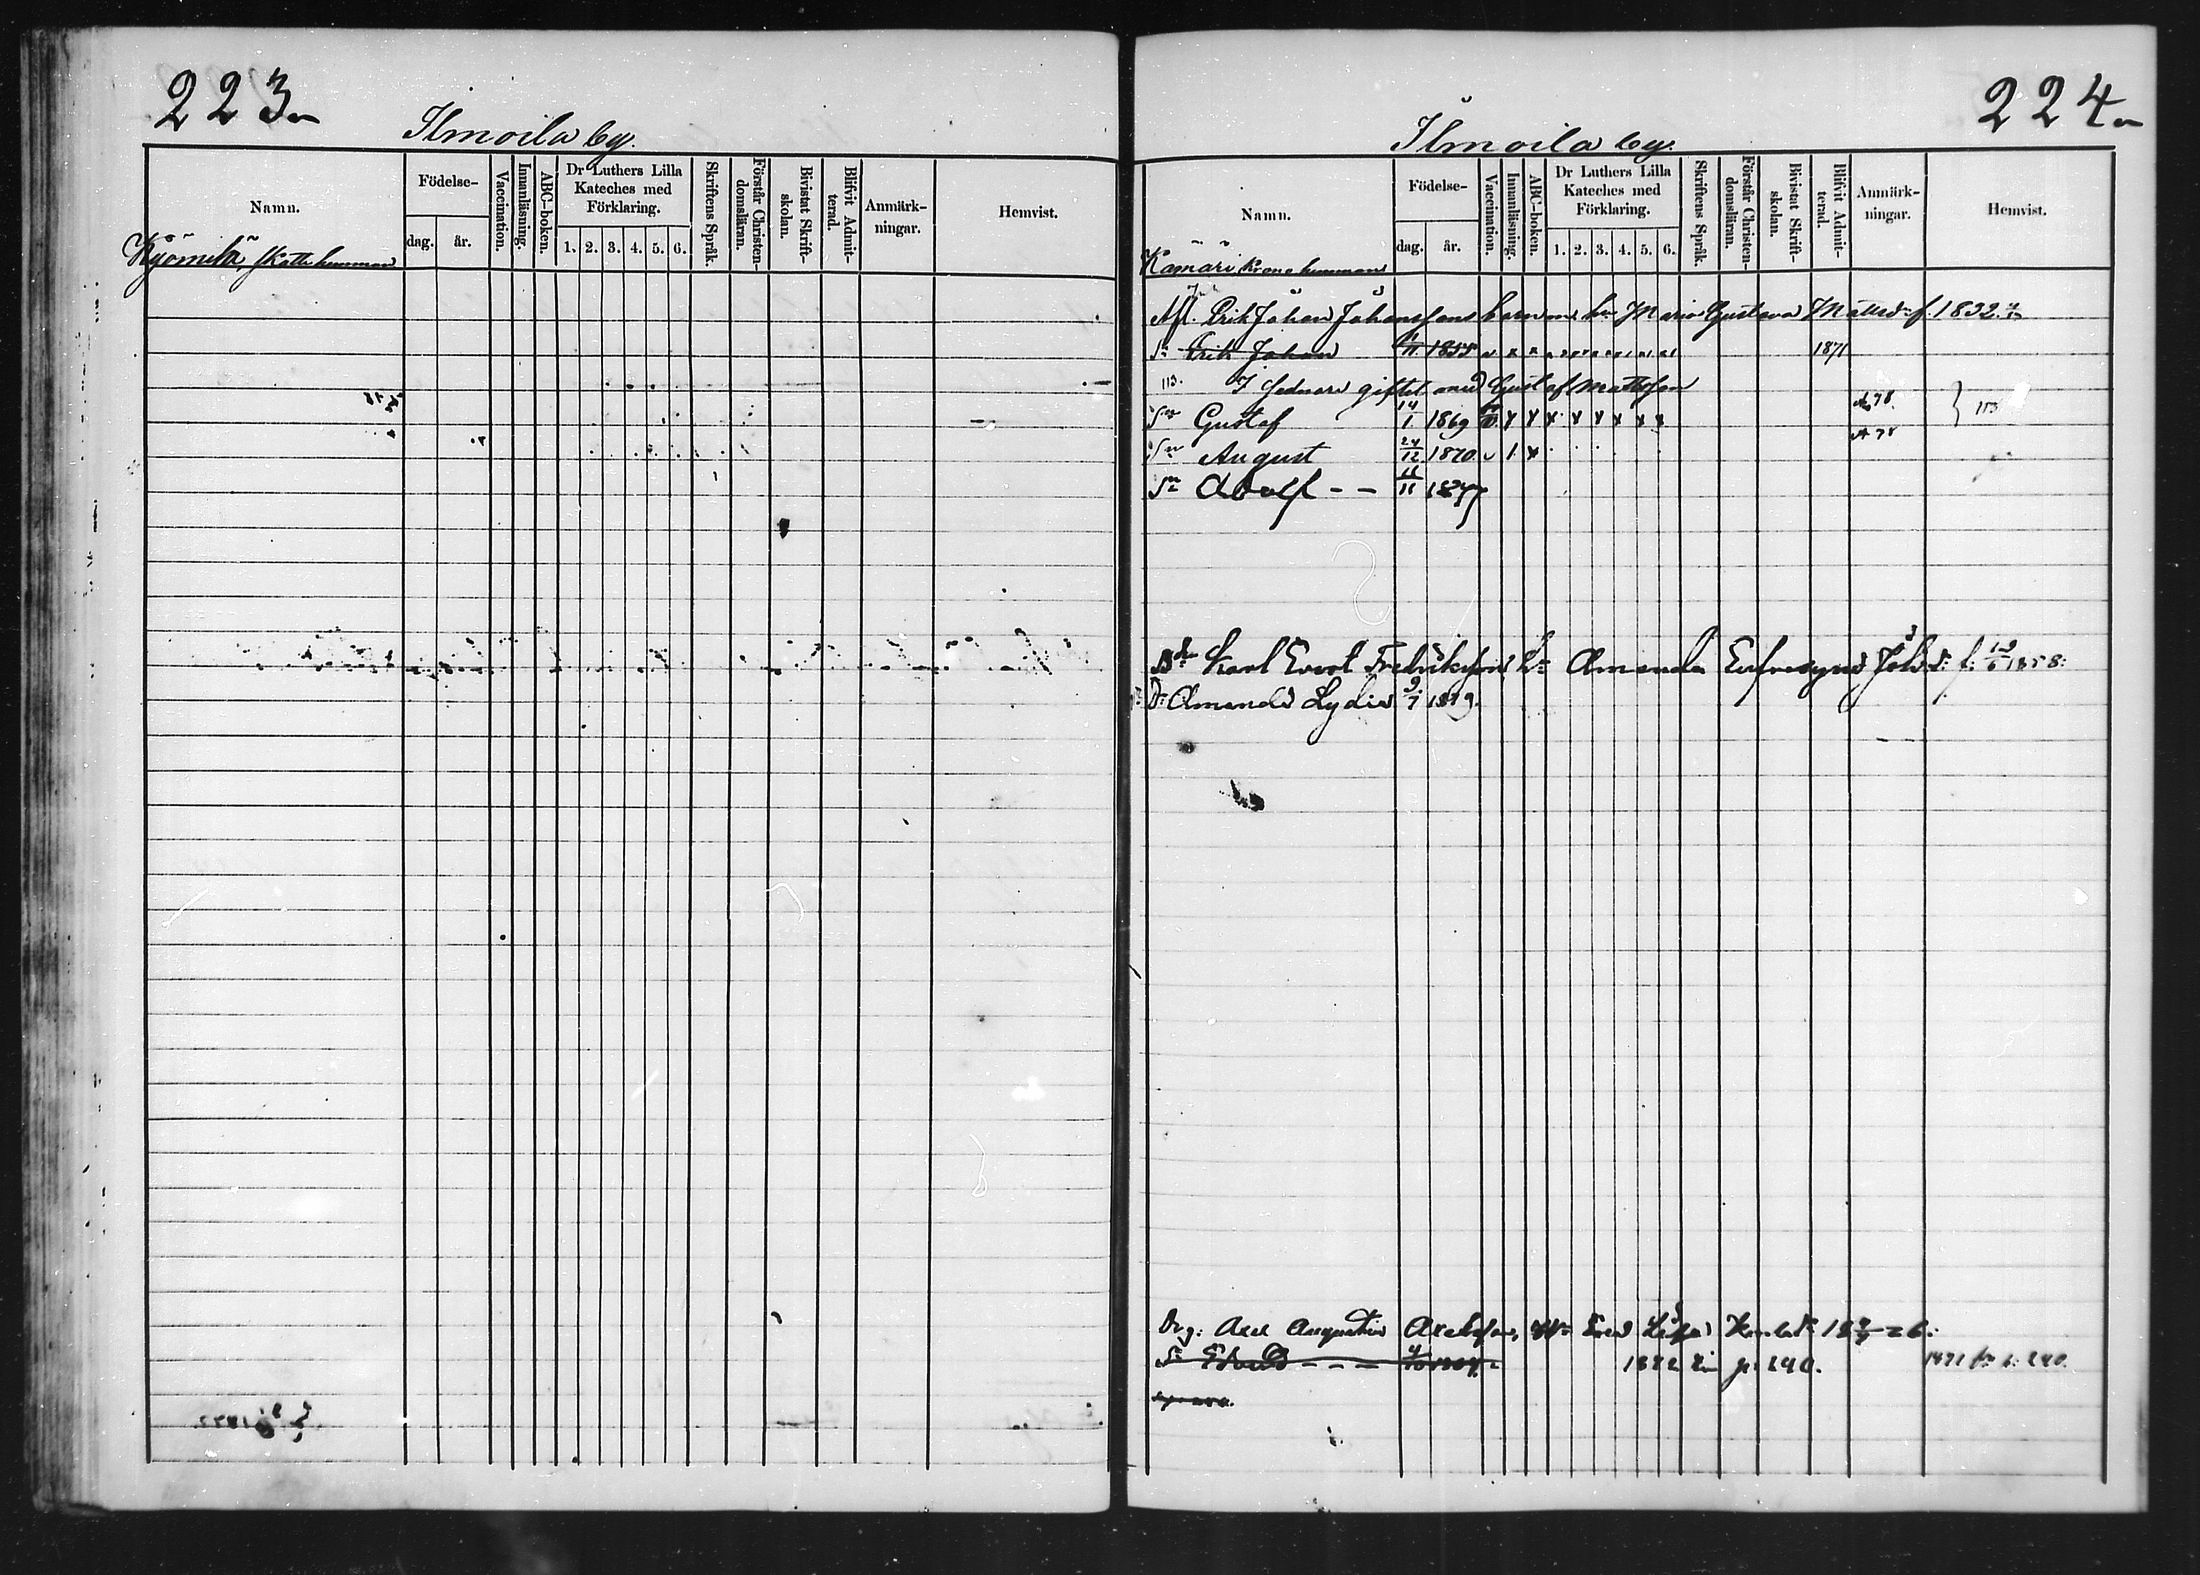 223
Ilmoila by.
Namn.
Födelse-
dag.
år.
Vaccination.
Innanläsning.
ABC-boken.
Dr Luthers Lilla
Kateches med
Förklaring.
1. 2. 3. 4. 5. 6.
Skriftens Språk.
Förstår Christen-
domsläran.
Bivistat Skrift-
skolan.
Blifvit Admit-
terad.
Anmärk-
ningar.
Hemvist.
Skattehemman
224
Ilmoila by.
Namn.
Födelse-
dag.
år.
Vaccination.
Innanläsning.
ABC-boken.
Dr Luthers Lilla
Kateches med
Förklaring.
1. 2. 3. 4. 5. 6.
Skriftens Språk.
Förstår Christen-
domsläran.
Bivistat Skrift-
skolan.
Blifvit Admit-
terad.
Anmärk-
ningar.
Hemvist.
Kämäri Kronohemman
Afl. Erik Johan Johanssons barn med hu Maria Gustava Mattsd. f. 1832
Sn Erik Johan 1855 1871
113. giftet med Gustaf Mattsson
Sn Gustaf 14/1 1869 x x x x x x x x 113
Sn August 24/12 1870
Sn Adolf - - 1877
Karl Evert Fredriksson Hu Amanda Eufrosyna Johsd. f. 1858:
Dr Amanda Lydia 9/7 1879.
Drg: Axel Augustin Axelsson,
Sn Edvard - - - 1882 p. 240.